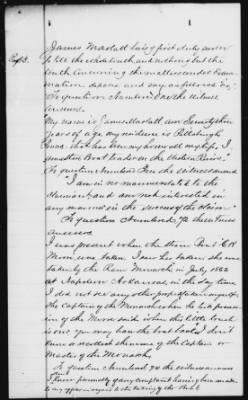 James Martatt being first duly sworn
to tell the whole truth and nothing but the
truth concerning the matters under Exam-
ination deposes and says as follows viz:
To question Number One the witness
answers.
My name is James Martatt am
years of age my residence is Pittsburgh
Penna. that has been my home all my life. I
Steam Boat trader on the Western Rivers."
To question Number Two the witness answers
"I am in no manner related to the
Claimant and am not interested in
any manner in the success of the claim."
To question Number 7th the witness
answers
I was present when the Steam Boat "E W
Moon" was taken. I saw her taken, she was
taken by the Ram Monarch in July 1862
at Napoleon Arkansas in the day time
I did not see any other property taken myself
the Captain of the Monarch when he
of the Moon said when this little brush
is over you may have the boat back. I don't
know or recollect the name of the Captain or
Master of the Monarch.
To question Number 20 the witness answers